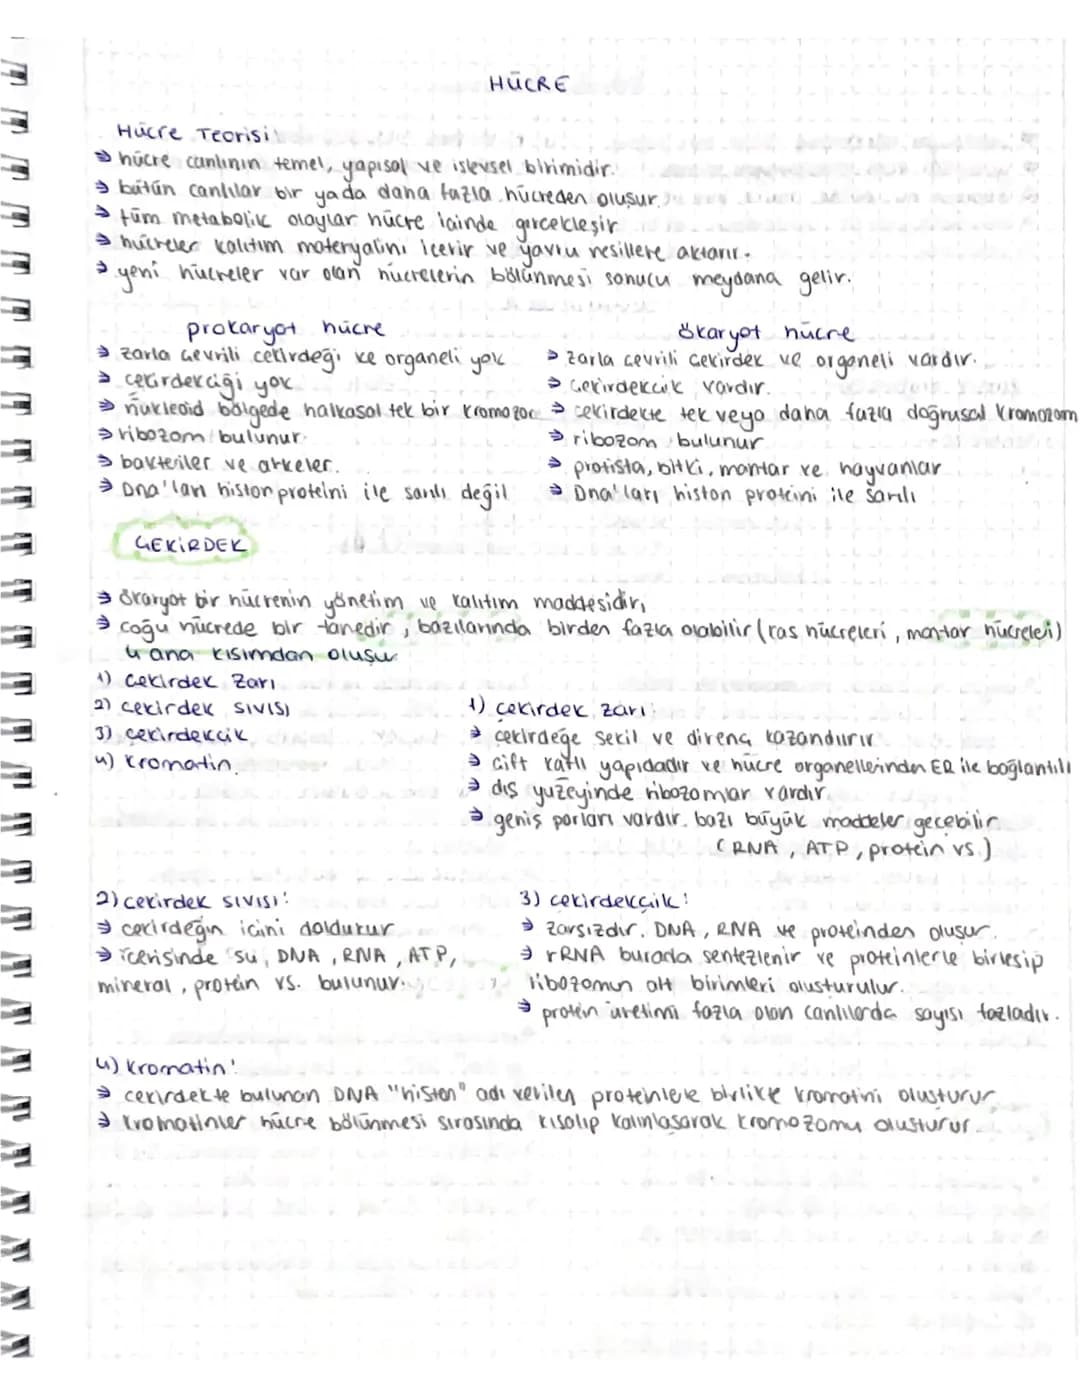 HÜCRE
Hücre Teorisi
→ hücre canlının temel, yapısal ve işlevsel birimidir.
→ bütün canlılar bir yada daha fazla hücreden oluşur.
→ tüm metabolik olaylar hücre içinde gerçekleşir
→ hücreler kalıtım materyalini içerir ve yavru nesillere aktarır.
→ yeni hücreler var olan hücrelerin bölünmesi sonucu meydana gelir.
prokaryot hücre
→ zarla çevrili çekirdeği ve organeli yok
→ çekirdekciği yok
→ nükleoid bölgede halkasal tek bir kromozom
→ ribozom bulunur
→ bakteriler ve arkeler.
→ Dna'ları histon proteini ile sarılı değil
ökaryot hücre
→ zarla çevrili çekirdek ve organeli vardır.
→ çekirdekcik vardır.
→ çekirdekte tek veya daha fazla doğrusal kromozom
→ ribozom bulunur
→ protista, bitki, mantar ve hayvanlar
→ Dna'ları histon proteini ile sarılı
ÇEKİRDEK
→ ökaryot bir hücrenin yönetim ve kalıtım maddesidir,
→ çoğu hücrede bir tanedir, bazılarında birden fazla olabilir (kas hücreleri, mantar hücreleri)
4 ana kısımdan oluşur
1) çekirdek zarı
2) çekirdek sıvısı
3) çekirdekçik
4) kromatin
1) çekirdek zarı:
→ çekirdeğe şekil ve direnç kazandırır
→ çift katlı yapıdadır ve hücre organellerinden ER ile bağlantılı
→ dış yüzeyinde ribozomlar vardır.
→ geniş porları vardır. bazı büyük maddeler geçebilir
(RNA, ATP, protein vs.)
2) çekirdek sıvısı:
→ çekirdeğin içini doldurur
→ içerisinde su, DNA, RNA, ATP,
mineral, protein vs. bulunur.
3) çekirdekçik:
→ zarsızdır. DNA, RNA ve proteinden oluşur.
→ rRNA burada sentezlenir ve proteinlerle birleşip
ribozomun alt birimleri oluşturulur.
→ protein üretimi fazla olan canlılarda sayısı fazladır.
4) kromatin:
→ çekirdekte bulunan DNA "histon" adı verilen proteinlerle birlikte kromatini oluşturur
→ kromatinler hücre bölünmesi sırasında kısalıp kalınlaşarak kromozomu oluşturur.